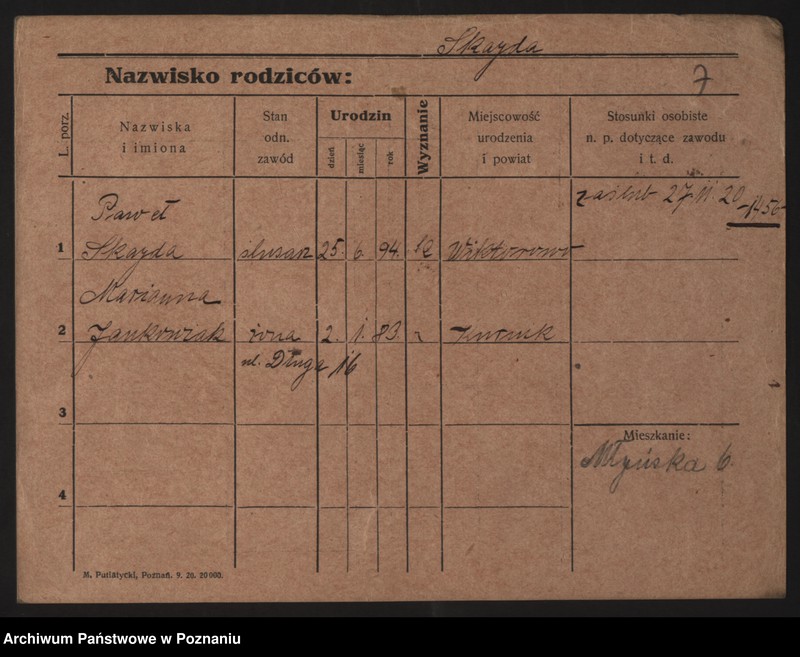 Skayda
Nazwisko rodziców:
7
L. porz.
Nazwiska
i imiona
Stan
odn.
zawód
Urodzin
dzień
miesiąc
rok
Wyznanie
Miejscowość
urodzenia
i powiat
Stosunki osobiste
n. p. dotyczące zawodu
i t. d.
zaślub 27 11 20
Paweł
1 Skayda ślusarz 25. 6. 94. Wiktorowo
Marianna
2 Jankowiak żona 2. 1. 83. Kurnik
ul. Długa 16
3
Mieszkanie:
Młyńska 6.
4
M. Putiatycki, Poznań. 9. 20. 20 000.
Archiwum Państwowe w Poznaniu